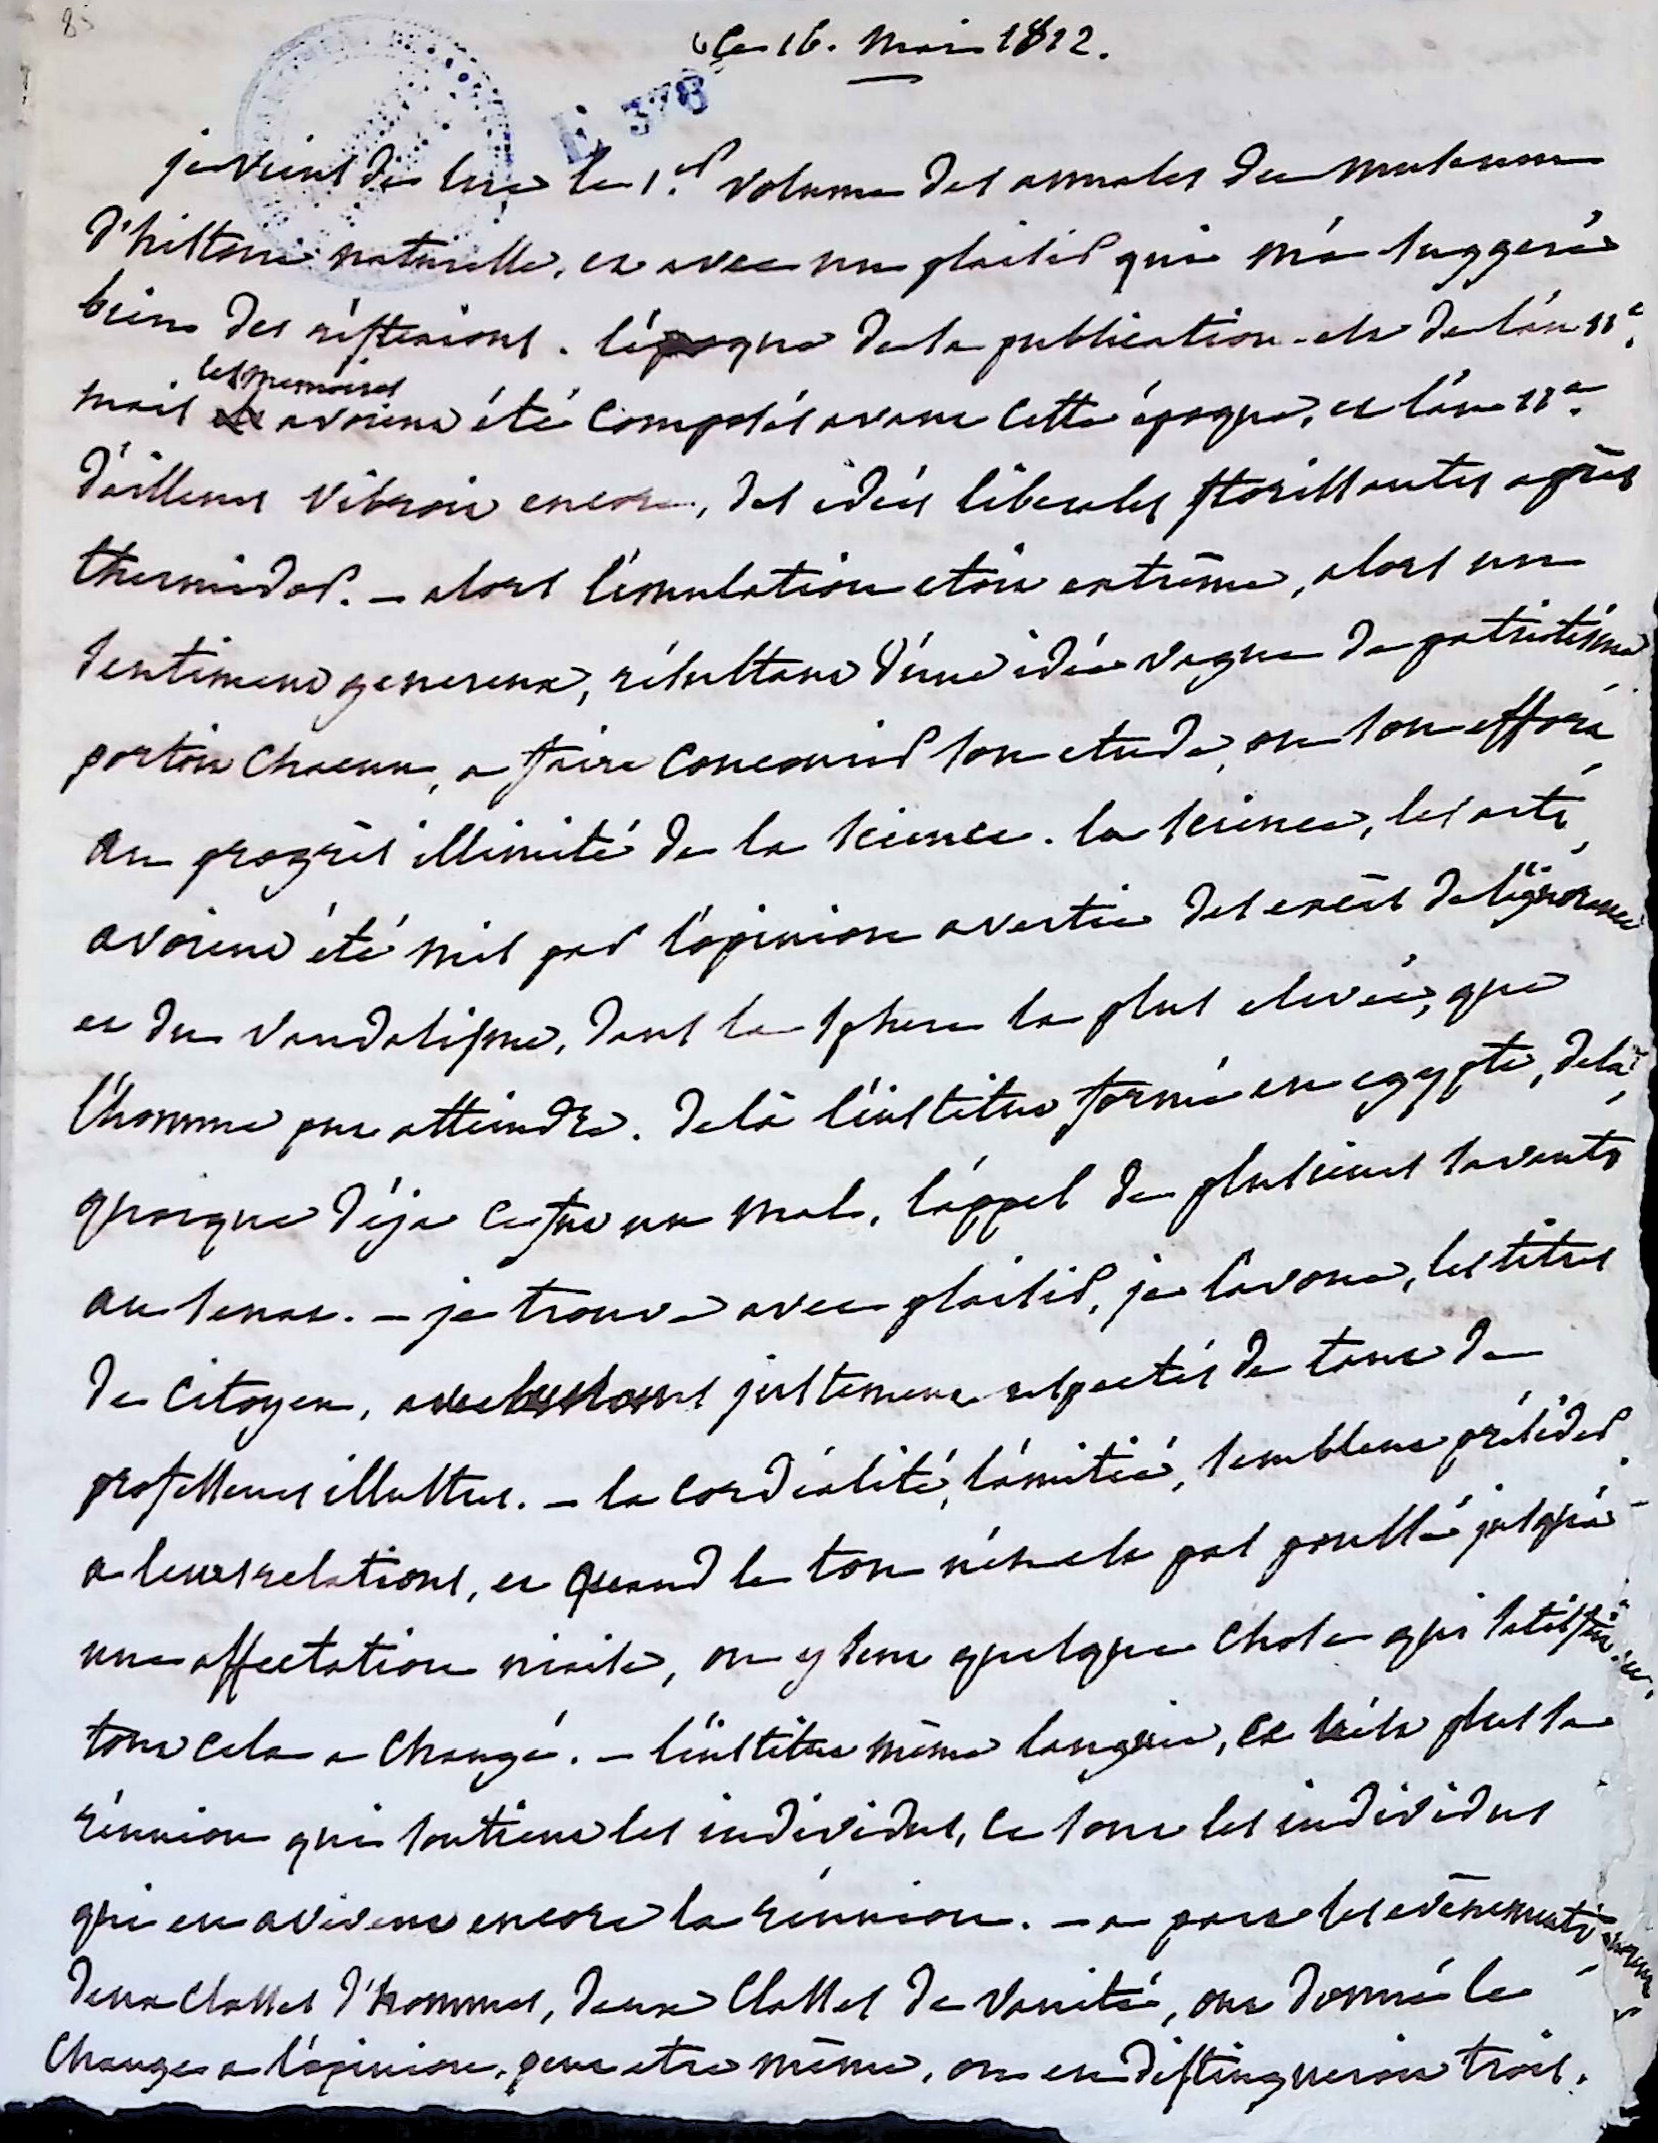 85
Ce 16. Mai 1812.
E 378
je viens de lire le 1.er volume des annales du museum
d'histoire naturelle, et avec un plaisir qui m'a suggeré
bien des réflexions. l'époque de la publication est de l'an 11e.
les memoires
mais avoient été composés avant cette époque, et l'an 11e.
d'ailleurs vibroit encore, des idées liberales florissantes après
thermidor. — alors l'émulation etoit extrême, alors un
sentiment genereux, résultant d'une idée vague de patriotisme
portoit chacun, a faire concourir son etude, ou son effort,
au progrès illimité de la science. la science, les arts,
avoient été mis par l'opinion avertie des excès de l'ignorance
et du vandalisme, dans la sphere la plus elevée, que
l'homme put atteindre. delà l'institut formé en egypte, delà,
quoique déja ce fut un mal, l'appel de plusieurs savants
au senat. — je trouve avec plaisir, je l'avoue, les titres
de citoyen, justement respectés de tant de
professeurs illustres. — la cordialité, l'amitié, semblent présider
a leurs relations, et quand le ton n'en est pas poussé jusqu'à
une affectation niaise, on y sent quelque chose qui satisfait.
tout cela a changé. — l'institut même languit, ce n'est plus la
réunion qui soutient les individus, ce sont les individus
qui en avivent encore la réunion. — a part les evènements
deux classes d'hommes, deux classes de vanité, ont donné le
change a l'opinion, peut etre même, on en distingueroit trois.